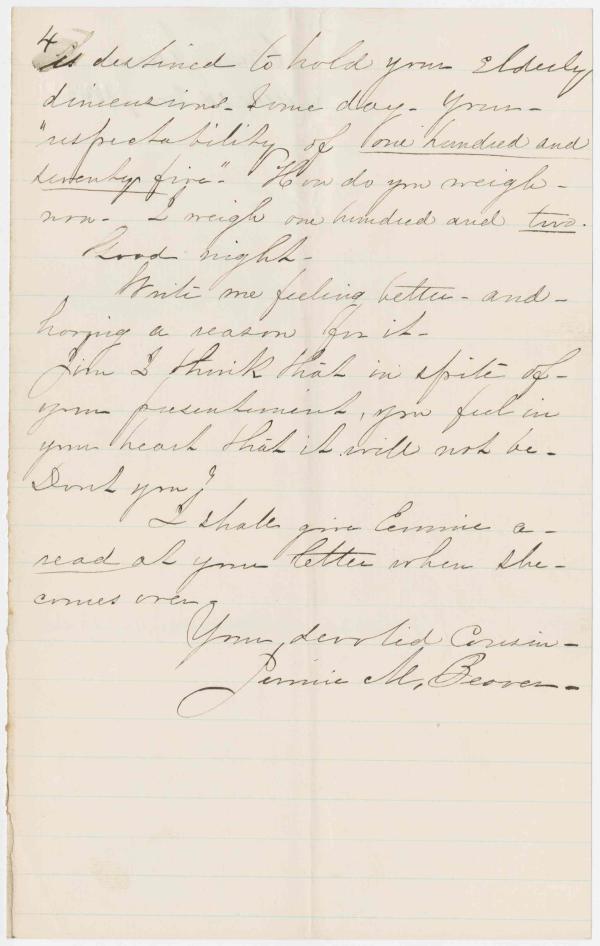 4
is destined to hold your Elderly
dimensions - some day - Your -
"respectability of one hundred and
seventy five". How do you weigh -
now - I weigh one hundred and two.
Good night -
Write me feeling better - and -
having a reason for it -
Jim I think that in spite of -
your presentiment, you feel in
your heart that it will not be -
Dont you?
I shall give Emmie a -
read at your letter when she -
comes over.
Your devoted Cousin -
Jennie M. Beaver -